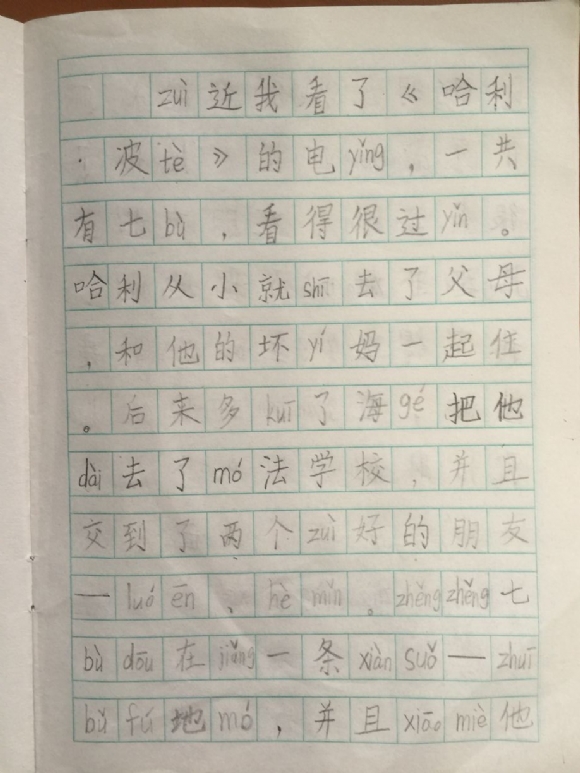 zuì近我看了《哈利
·波tè》的电yǐng，一共
有七bù，看得很过yǐn。
哈利从小就shī去了父母
，和他的坏yí妈一起住
。后来多kuī了海gé把他
dài去了mó法学校，并且
交到了两个zuì好的朋友
—luó ēn、hè mǐn。zhěng zhěng七
bù dōu在jiǎng一条xiàn suǒ—zhuī
bǔ fú地mó，并且xiāo miè他